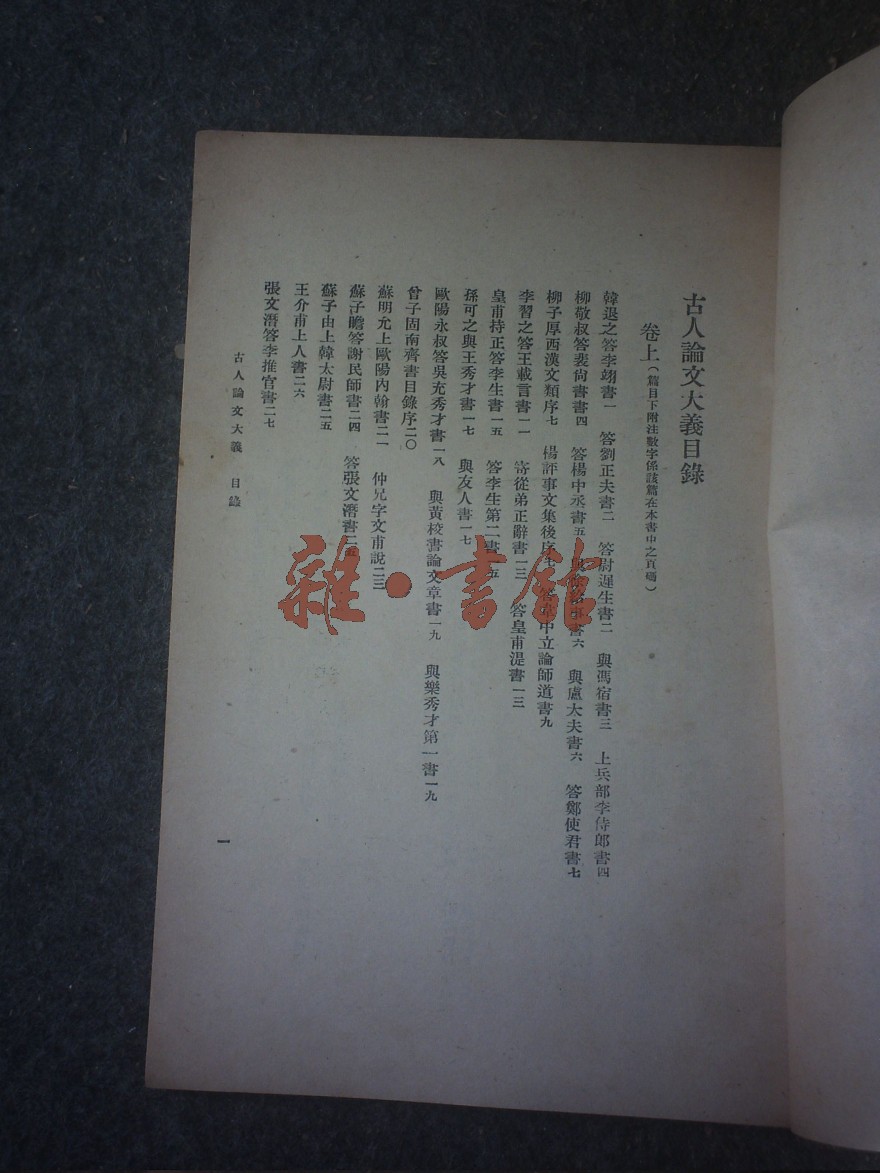 古人論文大義目錄
卷上（篇目下附注數字係該篇在本書中之頁碼）
韓退之答李翊書一　答劉正夫書二　答尉遲生書二　與馮宿書三　上兵部李侍郎書四
柳敬叔答裴尙書書四　答楊中丞書五　書六　與盧大夫書六　答鄭使君書七
柳子厚西漢文類序七　楊評事文集後序　中立論師道書九
李習之答王載言書一一　寄從弟正辭書一三　答皇甫湜書一三
皇甫持正答李生書一五　答李生第二書一五
孫可之與王秀才書一七　與友人書一七
歐陽永叔答吳充秀才書一八　與黃校書論文章書一九　與樂秀才第一書一九
曾子固南齊書目錄序二〇
蘇明允上歐陽內翰書二一　仲兄字文甫說二三
蘇子瞻答謝民師書二四　答張文潛書二五
蘇子由上韓太尉書二五
王介甫上人書二六
張文潛答李推官書二七
古人論文大義　目錄
一
雜·書館